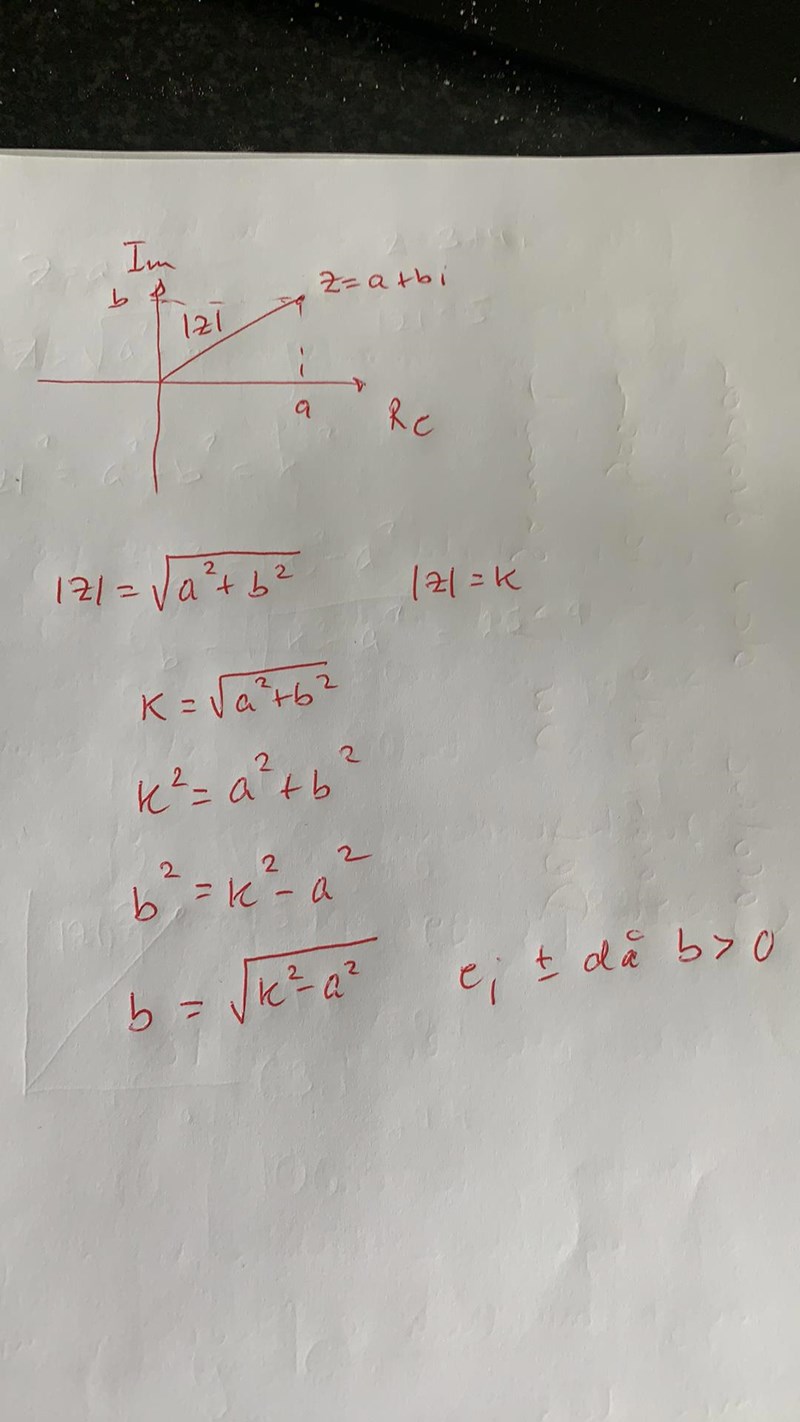 Im
b |z| z=a+bi
a Re
|z| = √a²+b² |z| = k
k = √a²+b²
k² = a²+b²
b² = k²-a²
b = √k²-a² ej ± då b > 0